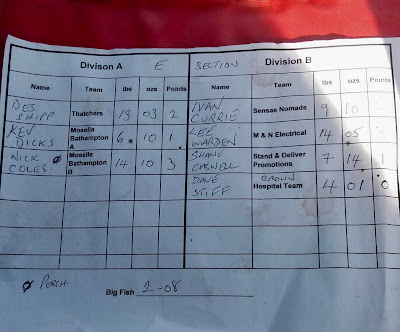 Divison A E SECTION Division B
Name Team lbs ozs Points Name Team lbs ozs Points
DES SHIPP Thatchers 13 03 2 IVAN CURRIE Sensas Nomads 9 10
KEV DICKS Mosella Bathampton A 6 10 1 LEE WARDEN M & N Electrical 14 05
NICK COLES Ø Mosella Bathampton B 14 10 3 SHANE CASWELL Stand & Deliver Promotions 7 14 1
DAVE STIFF CROWN Hospital Team 4 01 0
Ø PERCH
Big Fish 2-08